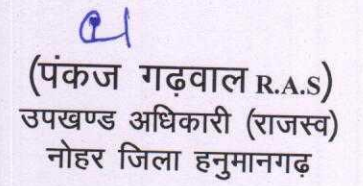 (पंकज गढ़वाल R.A.S)
उपखण्ड अधिकारी (राजस्व)
नोहर जिला हनुमानगढ़